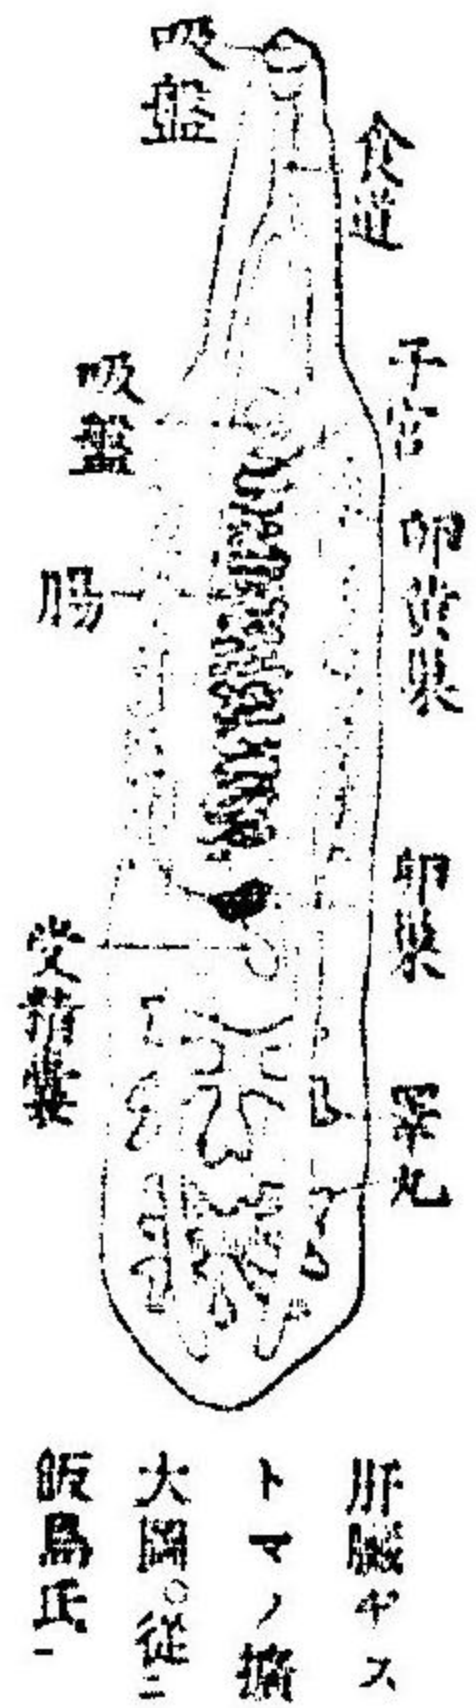 吸盤
食道
吸盤
子宮
腸
卵黄巣
卵巣
受精嚢
睾丸
肝臓ヂス
トマノ擴
大圖○從二
飯島氏一